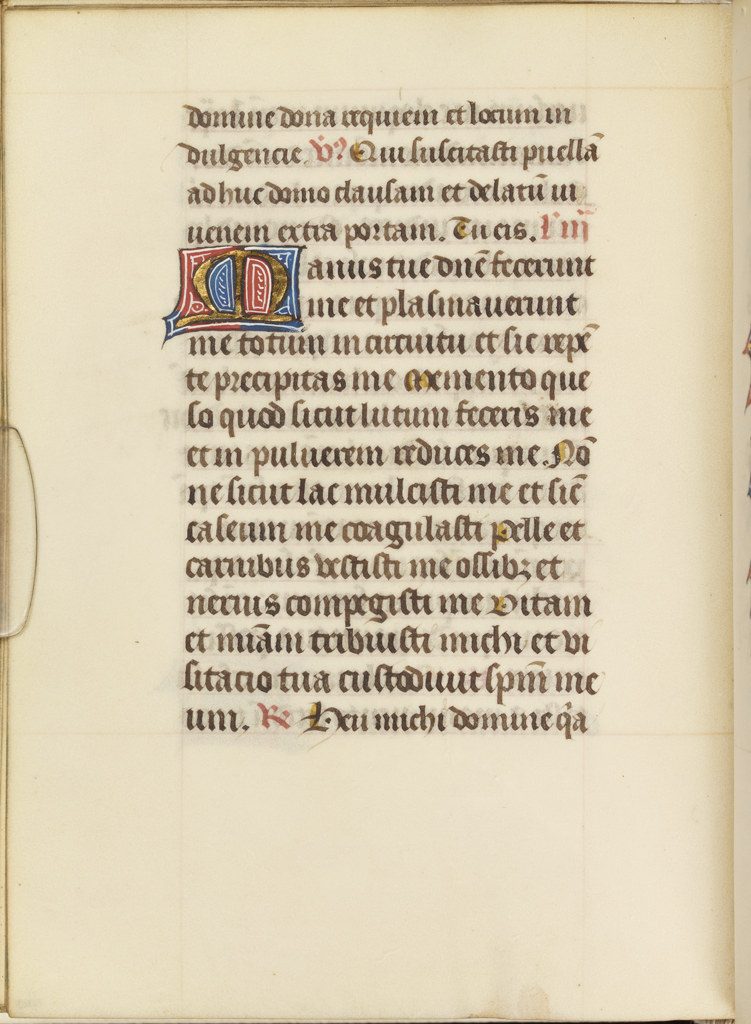 domine dona requiem et locum in
dulgencie. v̄? Qui suscitasti puellā
ad huc domo clausam et delatū iu
uenem extra portam. Tu eis. l' iii
Manus tue dn̄e fecerunt
me et plasmauerunt
me totum in circuitu et sic repē
te precipitas me Memento que
so quod sicut lutum feceris me
et in puluerem reduces me. Nō
ne sicut lac mulcisti me et sic̄
caseum me coagulasti Pelle et
carnibus vestisti me ossibꝫ et
neruis compegisti me Vitam
et mīam tribuisti michi et vi
sitacio tua custodiuit spm̄ me
um. R̄e Heu michi domine qͥa